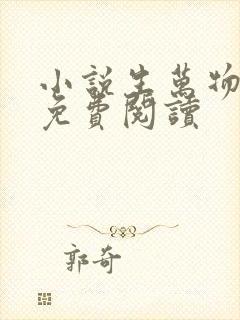 小說生萬物
免費閱讀
郭奇